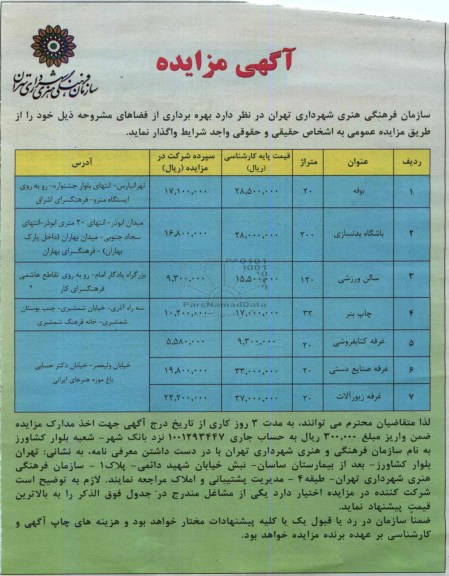 سازمان فرهنگی هنری شهرداری تهران
آگهی مزایده
سازمان فرهنگی هنری شهرداری تهران در نظر دارد بهره برداری از فضاهای مشروحه ذیل خود را از
طریق مزایده عمومی به اشخاص حقیقی و حقوقی واجد شرایط واگذار نماید.
ردیف عنوان متراژ قیمت پایه کارشناسی (ریال) سپرده شرکت در مزایده (ریال) آدرس
۱ بوفه ۲۰ ۲۸,۵۰۰,۰۰۰ ۱۷,۱۰۰,۰۰۰ تهرانپارس- انتهای بلوار جشنواره- رو به روی
ایستگاه مترو- فرهنگسرای اشراق
۲ باشگاه بدنسازی ۲۰۰ ۲۸,۰۰۰,۰۰۰ ۱۶,۸۰۰,۰۰۰ میدان ابوذر- انتهای ۲۰ متری ابوذر-انتهای
سجاد جنوبی- میدان بهاران (داخل پارک
بهاران) - فرهنگسرای بهاران
۳ سالن ورزشی ۱۲۰ ۱۵,۵۰۰,۰۰۰ ۹,۳۰۰,۰۰۰ بزرگراه یادگار امام- رو به روی تقاطع هاشمی
فرهنگسرای کار
۴ چاپ بنر ۳۲ ۱۷,۰۰۰,۰۰۰ ۱۰,۲۰۰,۰۰۰ سه راه آذری- خیابان شمشیری- جنب بوستان
شمشیری- خانه فرهنگ شمشیری
۵ غرفه کتابفروشی ۲۰ ۹,۳۰۰,۰۰۰ ۵,۵۸۰,۰۰۰
۶ غرفه صنایع دستی ۲۰ ۳۳,۰۰۰,۰۰۰ ۱۹,۸۰۰,۰۰۰ خیابان ولیعصر- خیابان دکتر حسابی
باغ موزه هنرهای ایرانی
۷ غرفه زیورآلات ۲۰ ۳۷,۰۰۰,۰۰۰ ۲۲,۲۰۰,۰۰۰
ParsNamadData
لذا متقاضیان محترم می توانند، به مدت ۳ روز کاری از تاریخ درج آگهی جهت اخذ مدارک مزایده
ضمن واریز مبلغ ۳۰۰,۰۰۰ ریال به حساب جاری ۱۰۰۱۲۹۳۴۴۷ نزد بانک شهر- شعبه بلوار کشاورز
به نام سازمان فرهنگی و هنری شهرداری تهران با در دست داشتن معرفی نامه، به نشانی: تهران
بلوار کشاورز- بعد از بیمارستان ساسان- نبش خیابان شهید دائمی- پلاک۱ - سازمان فرهنگی
هنری شهرداری تهران- طبقه۴ - مدیریت پشتیبانی و املاک مراجعه نمایند. لازم به توضیح است
شرکت کننده در مزایده اختیار دارد یکی از مشاغل مندرج در جدول فوق الذکر را به بالاترین
قیمت پیشنهاد نماید.
ضمنا سازمان در رد یا قبول یک یا کلیه پیشنهادات مختار خواهد بود و هزینه های چاپ آگهی و
کارشناسی بر عهده برنده مزایده خواهد بود.